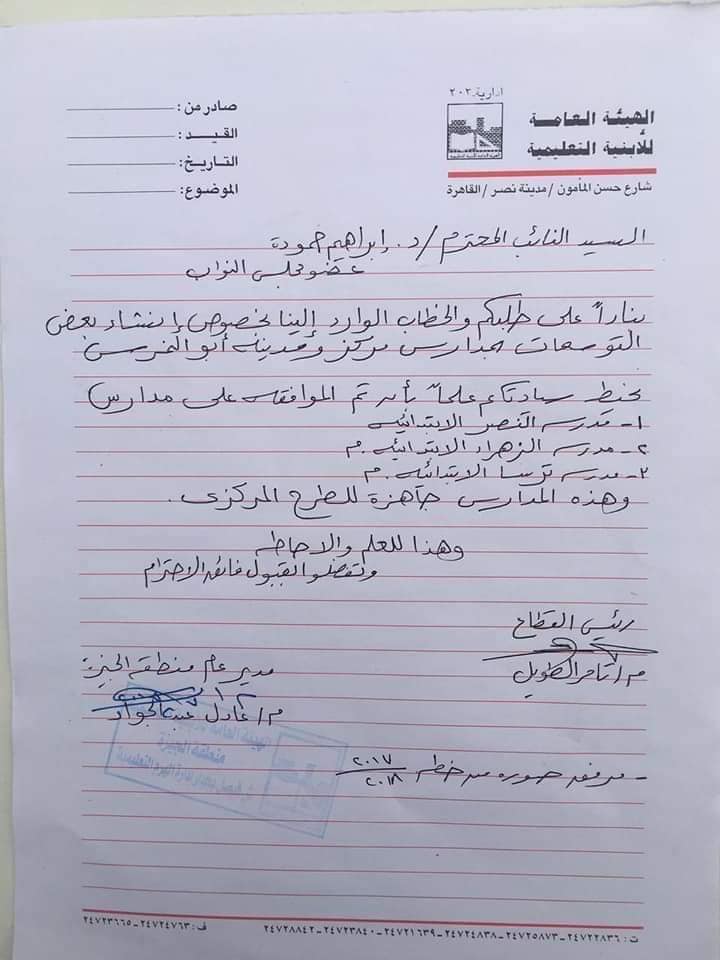 ادارية ٢٠٢
الهيئة العامة
للأبنية التعليمية
شارع حسن المأمون / مدينة نصر / القاهرة
صادر من :
القيد :
التاريخ :
الموضوع :
السيد النائب المحترم / د. إبراهيم حمودة
عضو مجلس النواب
بناءاً على طلبكم والخطاب الوارد إلينا بخصوص إنشاء بعض
التوسعات بمدارس مركز ومدينة أبو النمرس
نحيط سيادتكم علماً بأنه تم الموافقه على مدارس
١- مدرسه النصر الابتدائيه
٢- مدرسه الزهراء الابتدائيه . م
٣- مدرسه ترسا الابتدائيه . م
وهذه المدارس جاهزة للطرح المركزى .
وهذا للعلم والاحاطه
وتفضلوا بقبول فائق الاحترام
رئيس القطاع
م / تامر الطويل
مدير عام منطقة الجيزة
م / عادل عبدالجواد
منطقة الجيزة
- مرفق صوره من خطه ٢٠١٧/٢٠١٨
ت : ٢٤٧٢٢٨٣٦ - ٢٤٧٢٥٨٧٣ - ٢٤٧٢٤٨٣٨ - ٢٤٧٢١٦٣٩ - ٢٤٧٢٣٨٤٠ - ٢٤٧٢٨٨٤٢ ف : ٢٤٧٢٤٧٦٣ - ٢٤٧٢٣٦٦٥